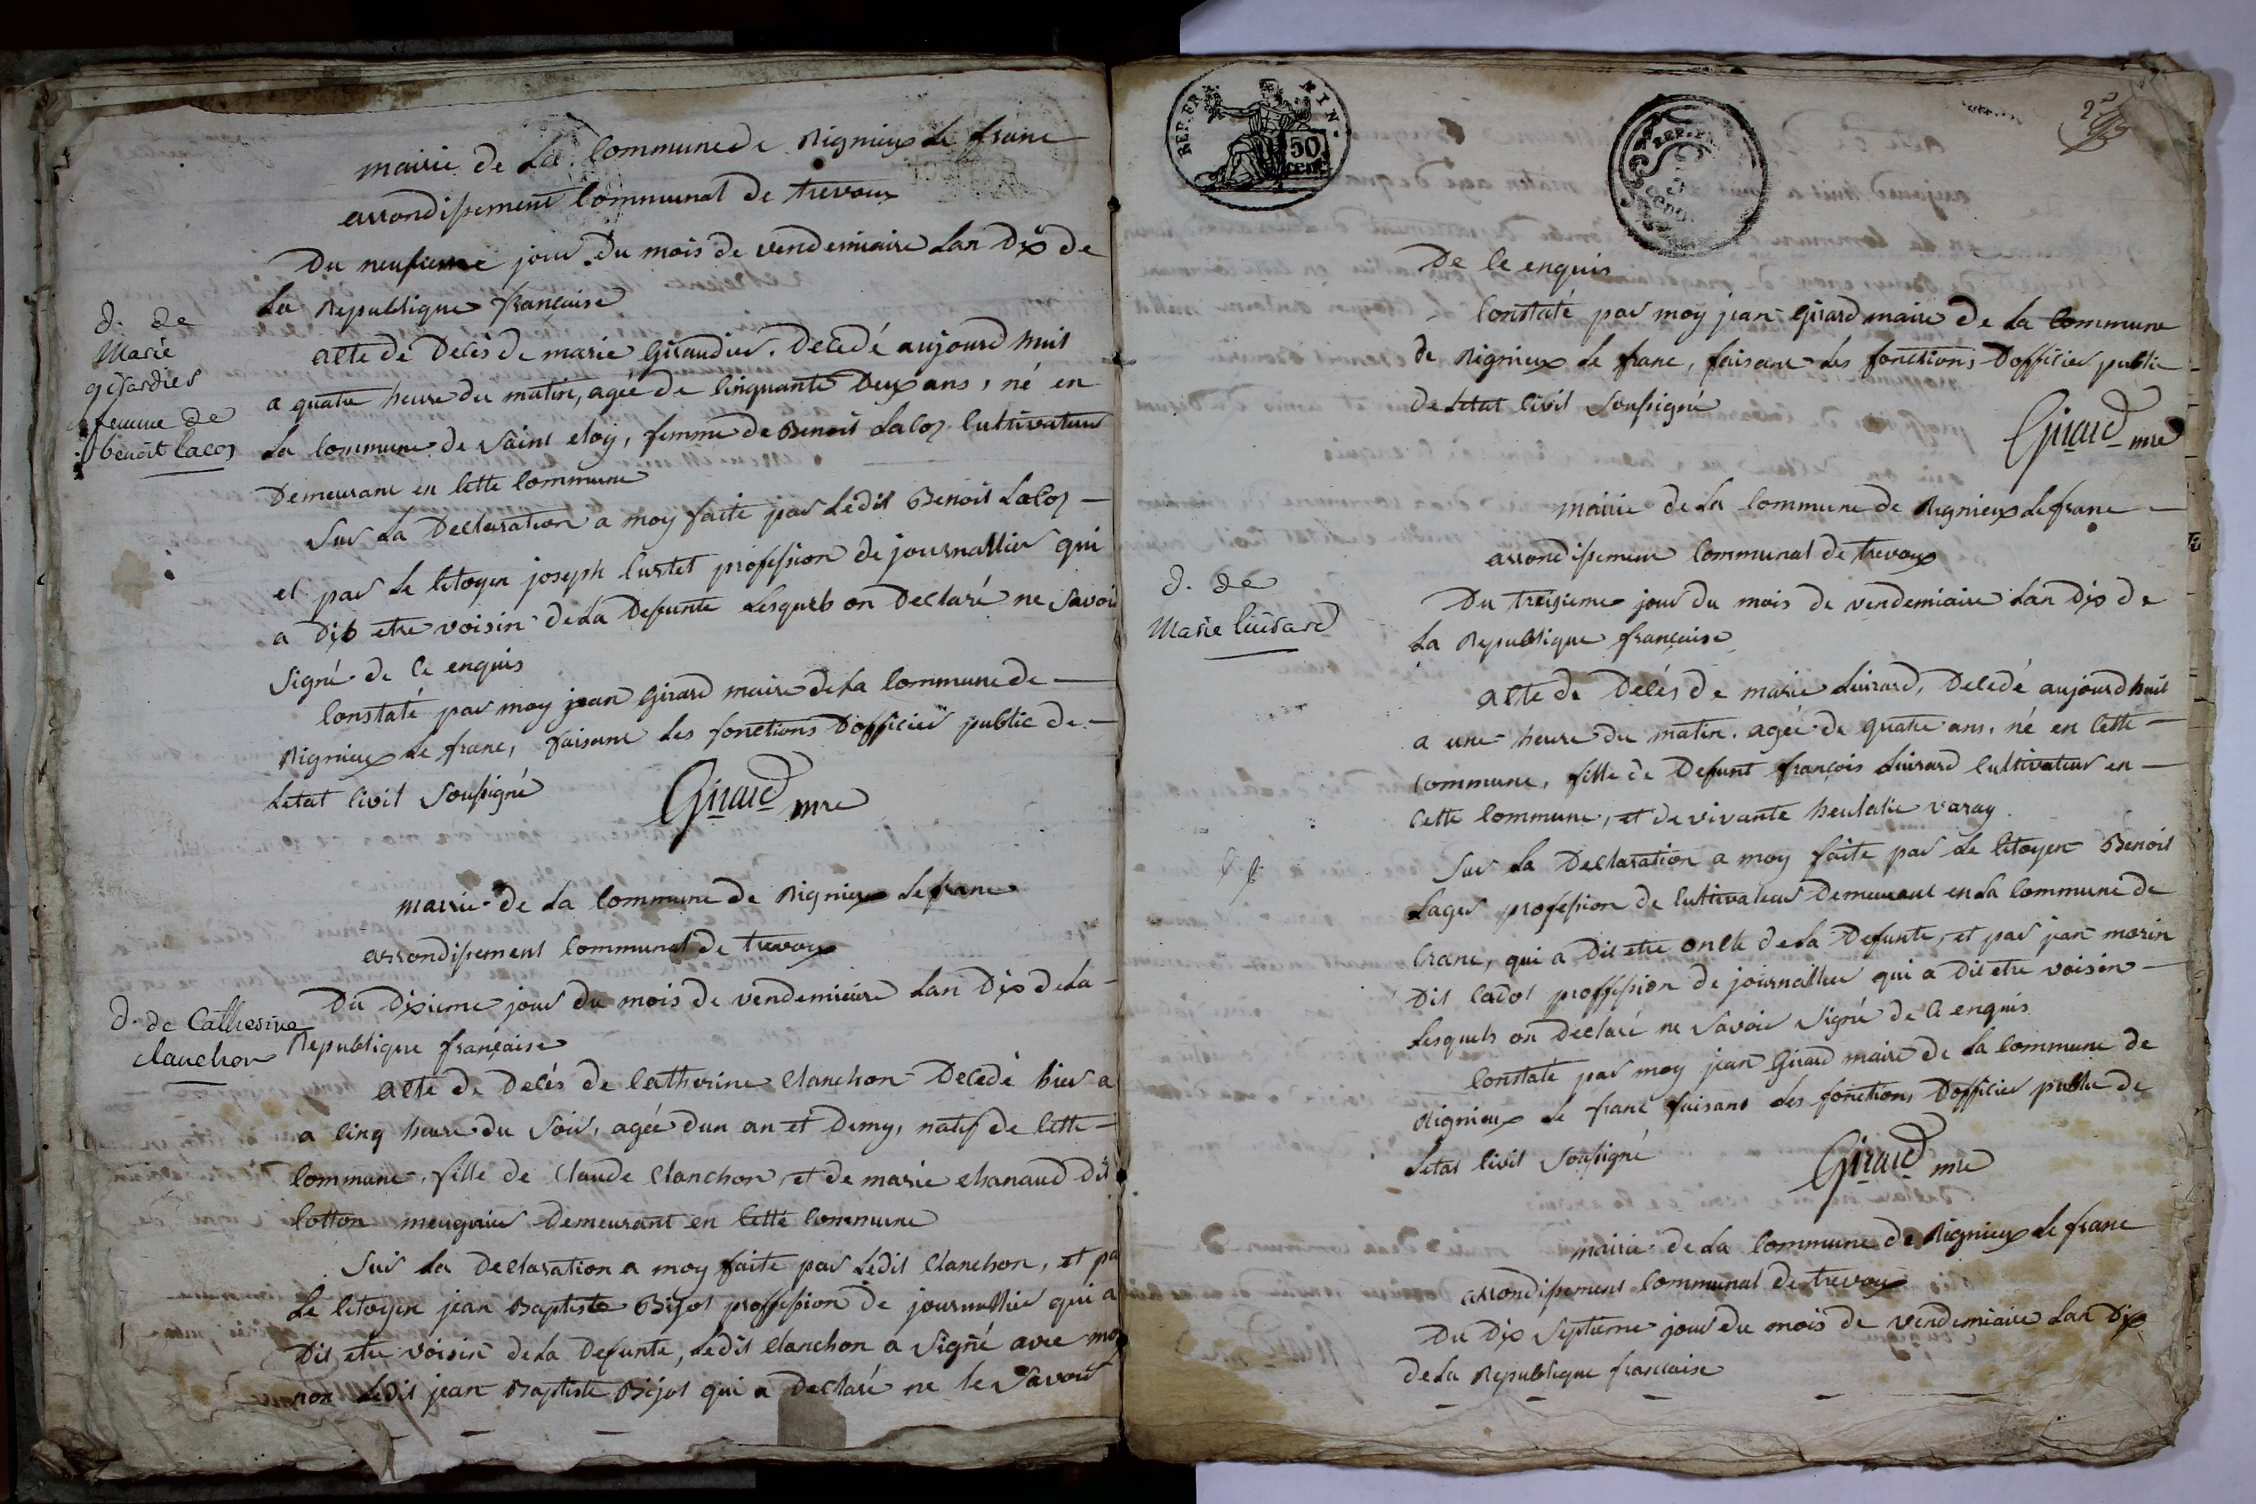 mairie de La Commune de Rignieux Le franc
arrondissement Communal de trevoux
Du neufieme jour Du mois de vendemiaire Lan Dix de
La Republique francaise
d. de
Marie
girardier
femme de
benoit lacos
acte de Decès de marie Giraudier. Decedé aujourd huit
a quatre heure du matin, agée de Cinquante Deux ans, né en
La Commune de Saint eloy, femme de Benoit Lacos Cultivateur
Demeurant en Cette Commune
Sur La Declaration a moy faite par Ledit Benoit Lacos
et par Le Citoyen joseph Curtet profession de journallier qui
a Dit etre voisin de La Defunte Lesquels on Declaré ne Savoir
Signé de Ce enquis
Constaté par moy jean Girard maire de La Commune de
Rignieux Le franc, faisant Les fonctions Dofficier public de
Letat Civil Soussigné
Girard mre
mairie de La Commune de Rignieux Le franc
arrondissement Communal de trevoux
Du Dixieme jour du mois de vendemiaire Lan Dix de La
Republique française
d. de Catherine
clanchon
acte de Decés de Catherine Clanchon Decedé hier a
a Cinq heure du Soir, agée Dun an et Demy, natif de Cette
Commune, fille de Claude Clanchon, et de marie chanaud Dit
Cotton meugnier Demeurant en Cette Commune
Sur La Declaration a moy faite par Ledit Clanchon, et pa
Le Citoyen jean Baptiste Bijot proffession de journallier qui a
Dit etre voisin de La Defunte, Ledit Clanchon a Signé avec moy
non Ledit jean Baptiste Bijot qui a Declaré ne le Savoir
REP. FRA.
TIM.
50
cent.
REP. FR.
De Ce enquis
Constaté par moy jean Girard maire de La Commune
de Rignieux Le franc, faisant Les fonctions Dofficier public
de Letat Civil Soussigné
Girard mre
mairie de La Commune de Rignieux Le franc
arrondissement Communal de trevoux
Du treisieme jour du mois de vendemiaire Lan Dix de
La Republique française
d. de
Marie Cuirard
acte de Decés de marie Cuirard, Decedé aujourd huit
a une heure du matin, agée de quatre ans, né en Cette
Commune, fille de Defunt françois Cuirard Cultivateur en
Cette Commune, et de vivante heulalie varay
Sur La Declaration a moy faite par Le Citoyen Benoit
Lager profession de Cultivateur Demeurant en La Commune de
Crane, qui a Dit etre oncle de La Defunte, et par jean morin
Dit Cadot proffession de journallier qui a Dit etre voisin
Lesquels on Declaré ne Savoir Signé de Ce enquis
Constaté par moy jean Girard maire de La Commune de
Rignieux Le franc faisant Les fonctions Dofficier public de
Letat Civil Soussigné
Girard mre
mairie de La Commune de Rignieux Le franc
arrondissement Communal de trevoux
Du Dix Septieme jour du mois de vendemiaire Lan Dix
de La Republique francaise